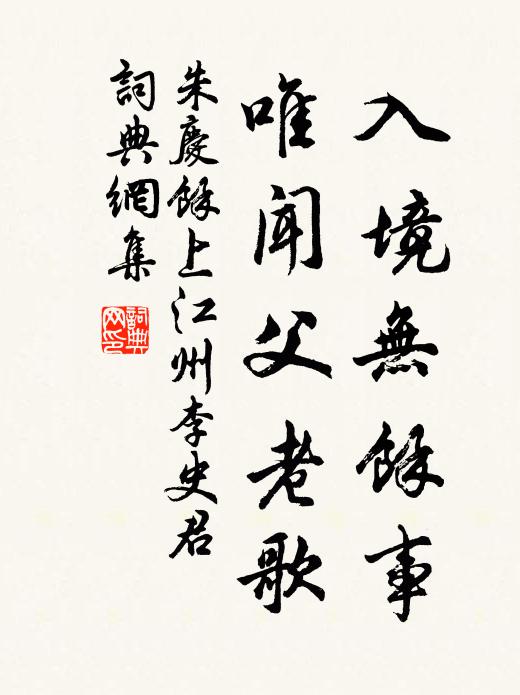 入境無餘事
唯聞父老歌
朱慶餘上江州李史君
詞典網集
詞典网印